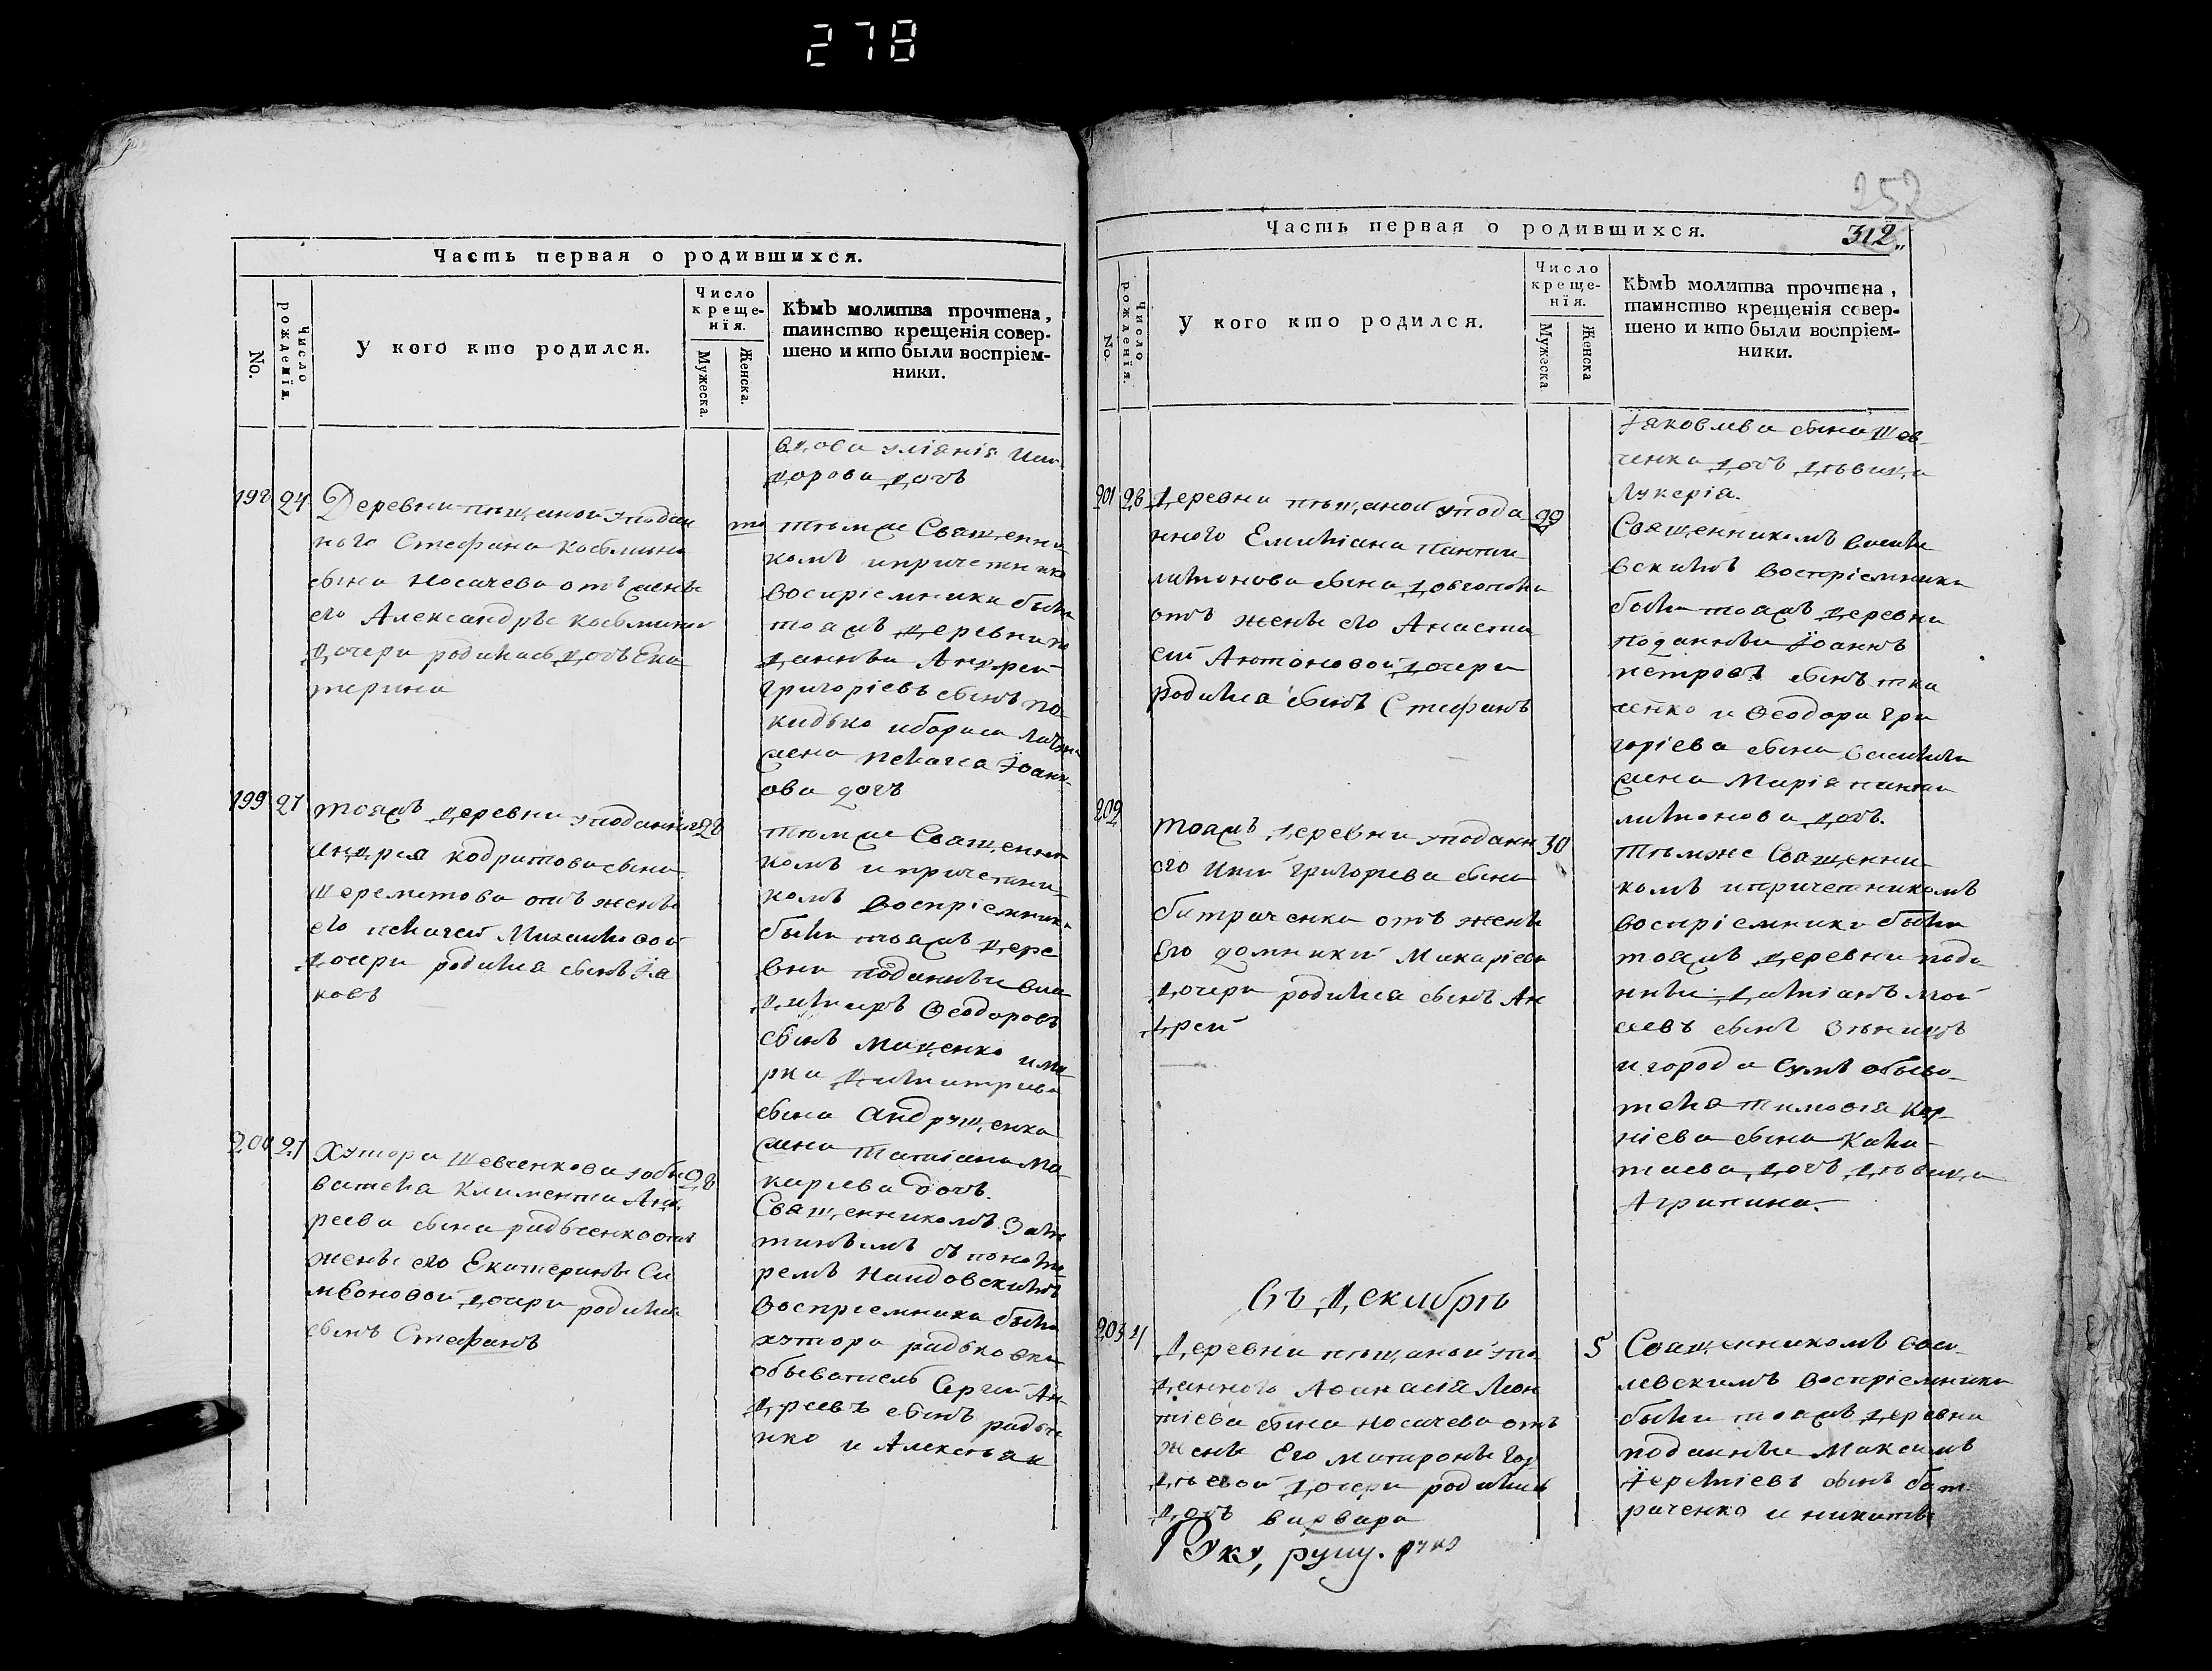 278
Часть первая о родившихся.
No.
Число рожденія.
У кого кто родился.
Число
креще-
нія.
Мужеска.
Женска.
Кѣмъ молитва прочтена,
таинство крещенія совер-
шено и кто были воспріем-
ники.
вдова Уліянія
дорова дочъ
198 24 Деревни пещаной уподан
ного Стефана Косьмина
сына Носачева отъ жены
его Александры Косьминой
дочери родилась дочъ Ека
терина
темже Священни
комъ и причетнико
воспріемники были
тояжъ деревни по
данныи Андрей
Григоріевъ сынъ по
жена Пелагея Іоанн-
ова дочъ
199 27 тояжъ деревни уподанного 28
Андрея Кодратова сына
Шереметова отъ жены
его Пелагеи Михайловой
дочери родился сынъ Іа
ковъ
темже Священни
комъ и причетни
комъ воспріемники
были тояжъ дере
вни поданныи Вла
димиръ Ѳеодоровъ
сынъ Маценко и Ма
рка Димитріева
сына Андрущенка
жена Татіана Ма
каріева дочъ.
200 27 Хутора Шевченкова у обы 28
вателя Климента Анд
реева сына Радченко отъ
жены его Екатерины Си
меоновой дочери родился
сынъ Стефанъ
Священникомъ
съ понома
ремъ
воспріемники были
хутора
обыватель Сергий Ан
дреевъ сынъ Радче
нко и Алексѣя
252
Часть первая о родившихся.
312
No.
Число рожденія.
У кого кто родился.
Число
креще-
нія.
Мужеска
Женска
Кѣмъ молитва прочтена,
таинство крещенія совер-
шено и кто были воспріем-
ники.
Іаковлева сына Шев
ченка дочъ дѣвица
Лукерія.
201 28 Деревни пѣщаной упода 29
нного Емиліана Панте
лимонова сына
отъ жены его Анаста
сіи Антоновой дочери
родился сынъ Стефанъ
Священникомъ Васили
вскимъ воспріемники
были тояжъ деревни
поданныи Іоаннъ
Петровъ сынъ Тка
ченко и Ѳеодора Гри
горіева сына
жена Марія Панте
лимонова дочъ.
202 тояжъ деревни уподанн 30
его Григоріева сына
Батраченка отъ жены
его Домникии Макаріевой
дочери родился сынъ Ан
дрей
Тѣмже Священни
комъ и причетникомъ
воспріемники были
тояжъ деревни пода
нныи Даміанъ Мои
сеевъ сынъ
и города Сумъ обыва
теля Тимоѳея Кор
ніева сына
дочъ дѣвица
Агрипина.
Въ Декабрѣ
203 4 Деревни пѣщаной упо 5
даннаго Аѳанасія Леон
тіева сына Носачева отъ
жены его Матроны Гор
дѣевой дочери родилась
дочъ Варвара
Священникомъ Васи
левскимъ воспріемники
были тояжъ деревни
поданныи Максимъ
Іереміевъ сынъ Бат
раченко и Никиты
Руку,